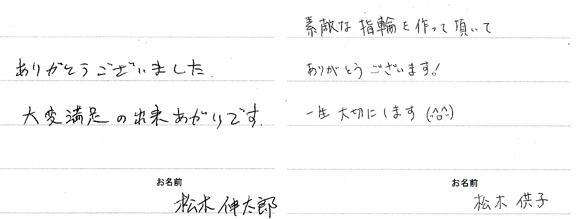 ありがとうございました.
大変満足の出来あがりです.
お名前
松木 伸太郎
素敵な指輪を作って頂いて
ありがとうございます!
一生大切にします (^o^)
お名前
松木 供子